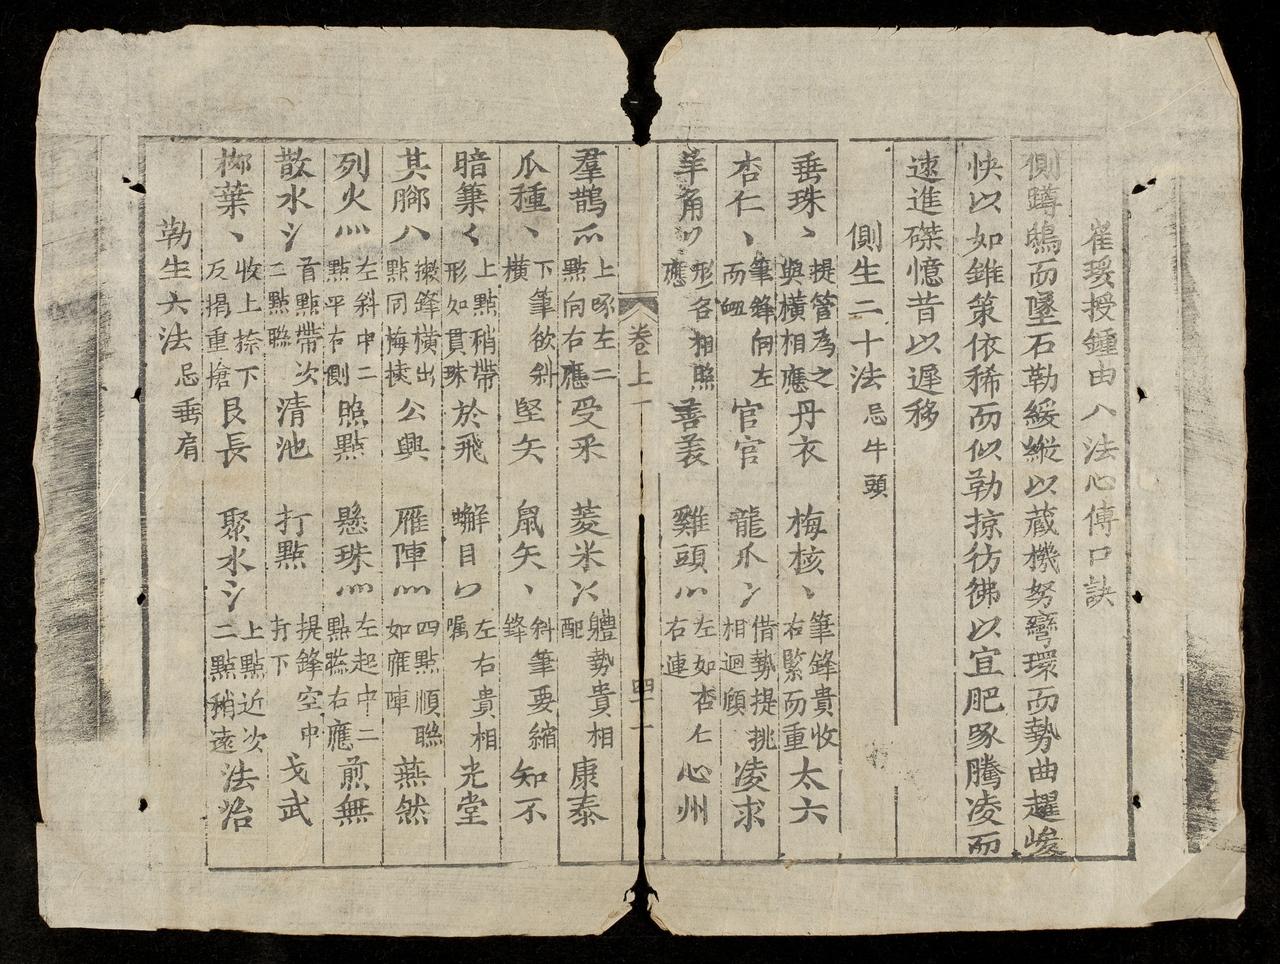 崔瑗授鍾由八法心傳口訣
側蹲鴟而墜石勒緩縱以藏機努彎環而勢曲趯峻
快以如錐策依稀而似勒掠彷彿以宜肥啄騰凌而
速進磔憶昔以遲移
側生二十法 忌牛頭
垂珠丶 提管為之與橫相應 丹衣 梅核丶 筆鋒貴收右緊而重 太六
杏仁丶 筆鋒向左而衄 官宦 龍爪冫 借勢提挑相迴顧 凌求
羊角丷 形各相照應 善羨 雞頭 左如杏仁右連 心州
卷上 四十一
羣鵲爫 上啄左二點向右應 受采 菱米 軆勢貴相配 康泰
瓜種丶 下筆欲斜橫 堅矢 鼠矢丶 斜筆要縮鋒 知不
暗筆 上點稍帶形如貫珠 於飛 蠏目 左右貴相矚 光堂
其腳八 撇鋒橫出點同梅核 公興 雁陣灬 四點順聯如雁陣 燕然
列火灬 左斜中二點平右側 照點 懸珠灬 左起中二點聯右應 煎無
散水氵 首點帶次二點聯 清池 打點 提鋒空中打下 戈武
柳葉丶 收上捺下万揭重搶 艮長 聚水氵 上點近次二點稍遠 法治
勒生六法 忌垂肩